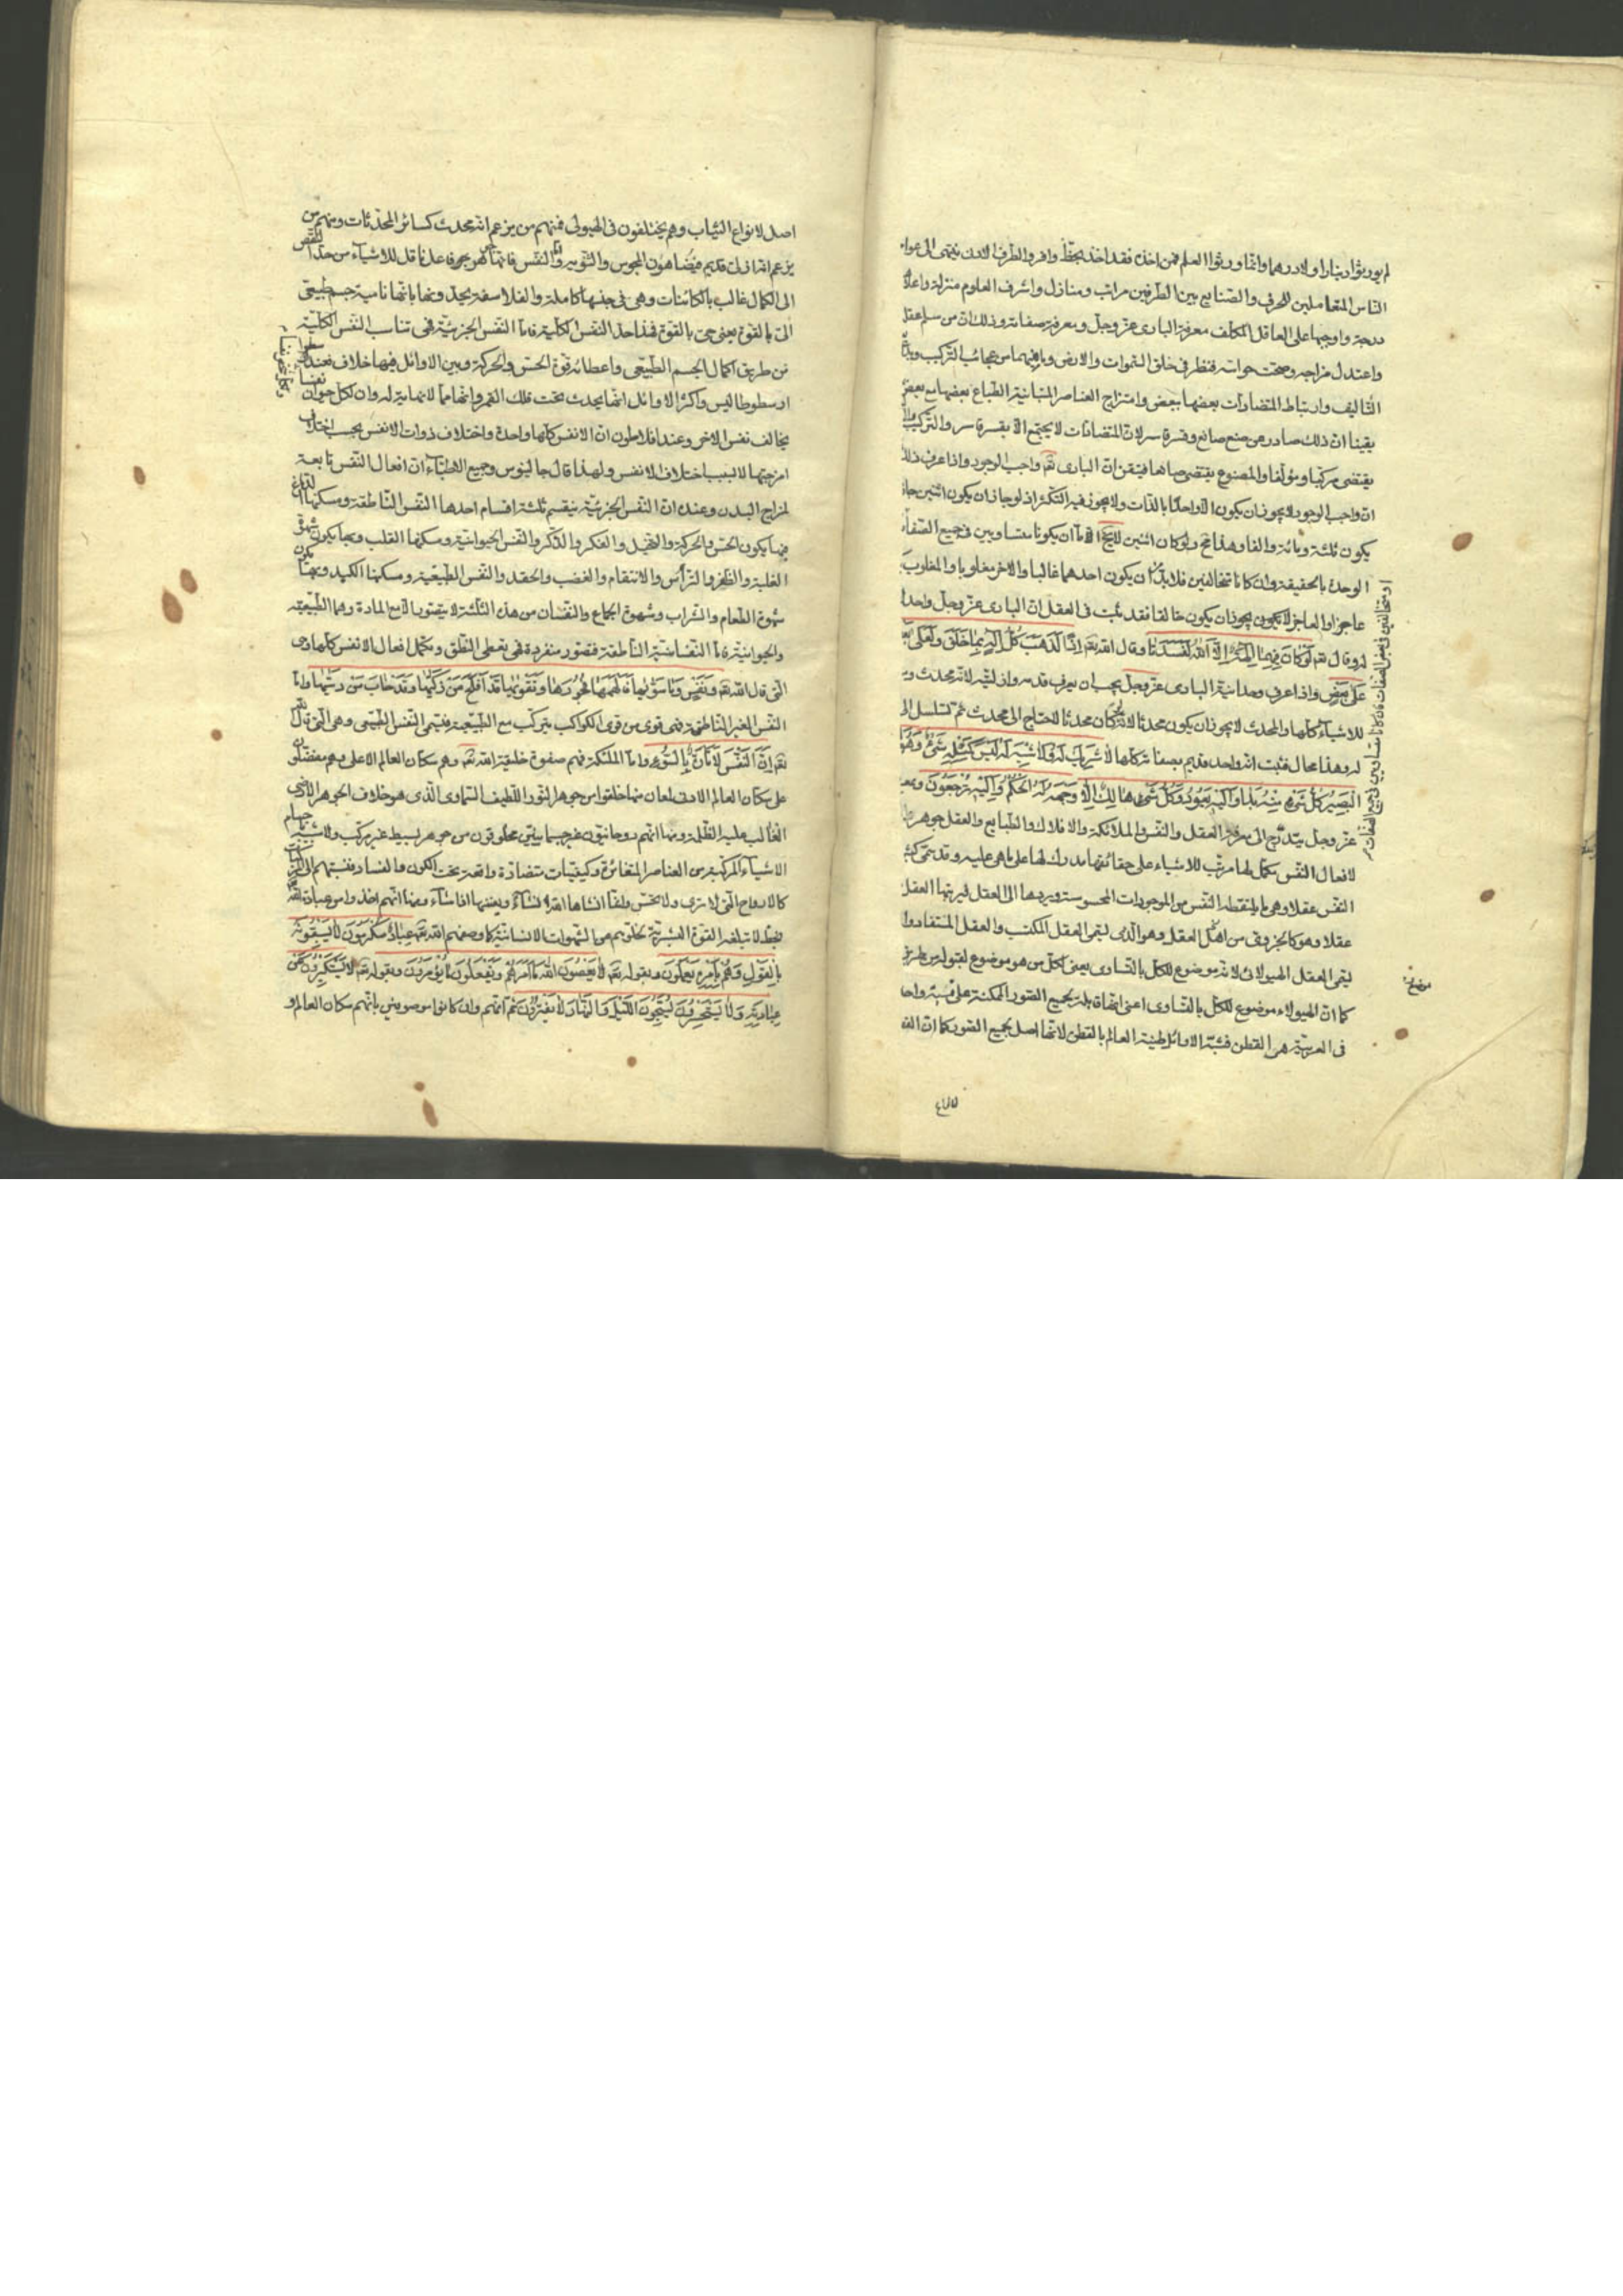 لم يورثوا دينارا ولا درهما وانما ورثوا العلم فمن اخذه فقد اخذ بحظ وافر والطرف الادن ينتمى الى عوام
الناس المتعاملين للحرف والصنايع بين الطرفين مراتب ومنازل واشرف العلوم منزلة واعلاه
درجة واوجبها على العاقل المكلف معرفة البارى عز وجل ومعرفة صفاته وذلك ان من سلم عقله
واعتدل مزاجه وصحت حواسه فنظر فى خلق السموات والارض وما فيهما من عجائب التركيب
التأليف وارتباط المتضادات بعضها ببعض وامتزاج العناصر المتباينة الطباع بعضها مع بعض
يقينا ان ذلك صادر من صنع صانع وقسرة قاسر لان المتضادات لا يجتمع الا بقسرة قاسر والتركيب
يقتضى مركبا ومؤلفا والمصنوع يقتضى صانعا فتيقن ان البارى تعه واجب الوجود واذا عرف ذلك
ان واجب الوجود لا يجوز ان يكون الا واحدا بالذات ولا يجوز فيه التكثر اذ لو جاز ان يكون اثنين جاز
يكون ثلثة ومائة والفا وهذا مح ولو كان اثنين اما ان يكونا متساويين فى جميع الصفات
الوحدة بالحقيقة وان كانا متخالفين فلا بد ان يكون احدهما غالبا والاخر مغلوبا والمغلوب
عاجزا والعاجز لا يجوز ان يكون خالقا فقد ثبت فى العقل ان البارى عز وجل واحد
وقال تعه لَوْ كَانَ فِيهِمَا آلِهَةٌ إِلَّا اللهُ لَفَسَدَتَا وقال الله تعه اِذًا لَذَهَبَ كُلُّ اِلٰهٍ بِمَا خَلَقَ وَلَعَلَى
عَلَى بَعْضٍ واذا عرف وحدانية البارى عز وجل يجب ان يعرف قدمه وازليته لانه محدث
للاشياء كلها والمحدث لا يجوز ان يكون محدثا لانه لو كان محدثا لاحتاج الى محدث ثم تسلسل
وهذا محال فثبت انه واحد قديم بصفاته كلها لا شريك له ولا شبيه له لَيْسَ كَمِثْلِهِ شَىْءٌ وَهُوَ
الْبَصِيرُ كل شىء منه بدا واليه يعود وَكُلُّ شَىْءٍ هَالِكٌ اِلَّا وَجْهَهُ لَهُ الْحُكْمُ وَاِلَيْهِ تُرْجَعُونَ
عز وجل يتدرج الى معرفة العقل والنفس والملائكة والافلاك والطبايع والعقل جوهر
لافعال النفس مكمل لها مرتب للاشياء على حقائقها مدرك لها على ما هى عليه وقد سمى
النفس عقلا وهى ما يلتقطه النفس من الموجودات المحسوسة ويردها الى العقل ليرتبها العقل
عقلا وهو كالجزوى من العقل وهو الذى يسمى العقل المكتسب والعقل المستفاد
يسمى العقل الهيولانى لانه موضوع للكل بالتساوى يعنى لكل من هو موضوع لقبوله
كما ان الهيولاء موضوع للكل بالتساوى اعنى انها قابلة بجميع الصور الممكنة على نسبة واحدة
فى العربية هى القطن فشبه الاوائل طينة العالم بالقطن لانها اصل بجميع الصور كما ان
او متخالفين فى بعض الصفات فان كانا متساويين فى جميع الصفات
اصل لانواع الثياب وهم يختلفون فى الهيولى فمنهم من يزعم انه محدث كسائر المحدثات ومنهم من
يزعم انه ازلى قديم فيضاهون المجوس والثنوية واما النفس فانما هو جوهر فاعل ناقل للاشياء من حد النقص
الى الكمال غالب بالكائنات وهى فى جنسها كاملة والفلاسفة يحدونها بانها تمامية جسم طبيعى
الى بالقوة يعنى حى بالقوة فهذا حد النفس الكلية فاما النفس الجزئية فهى تناسب النفس الكلية
من طريق اكمال الجسم الطبيعى واعطائه قوة الحس والحركة وبين الاوائل فيها خلاف فعند
ارسطوطاليس واكثر الاوائل انها يحدث تحت فلك القمر وانها مما لا نهاية له وان لكل حيوان نفسا
يخالف نفس الاخر وعند افلاطون ان الانفس كلها واحدة واختلاف ذوات الانفس بحسب اختلاف
امزجتها لا بسبب اختلاف الانفس ولهذا قال جالينوس وجميع الاطباء ان افعال النفس تابعة
لمزاج البدن وعنده ان النفس الجزئية ينقسم ثلثة اقسام احدها النفس الناطقة ومسكنها الدماغ
فيها يكون الحس والحركة والتخيل والفكر والذكر والنفس الحيوانية ومسكنها القلب وبها يكون شهوة
الغلبة والظفر والترأس والانتقام والغضب والحقد والنفس الطبيعية ومسكنها الكبد وبها يكون
شهوة الطعام والشراب وشهوة الجماع والنفسان من هذه الثلثة لا يتصور الا مع المادة وهما الطبيعية
والحيوانية فاما النفسانية الناطقة فتصور منفردة فهى تعطى النطق وتكمل افعال الانفس كلها وهى
التى قال الله تعه وَنَفْسٍ وَمَا سَوّٰيهَا فَاَلْهَمَهَا فُجُورَهَا وَتَقْوٰيهَا قَدْ اَفْلَحَ مَنْ زَكّٰيهَا وَقَدْ خَابَ مَنْ دَسّٰيهَا واما
النفس الغير الناطقة فهى قوى من قوى الكواكب يتركب مع الطبيعة فتسمى النفس الطبيعى وهى التى قال الله
تعه اِنَّ النَّفْسَ لَاَمَّارَةٌ بِالسُّوءِ واما الملئكة فهم صفوة خليقة الله تعه وهم سكان العالم الاعلى وهم مفضلون
على سكان العالم الادنى لمعان منها خلقوا من جوهر النور اللطيف السماوى الذى هو خلاف الجوهر الارضى
الغالب عليه الظلمة ومنها انهم روحانيون غير جسمانيين مخلوقون من جوهر بسيط غير مركب
الاشياء المركبة من العناصر المتغائرة وكيفيات متضادة واقعة تحت الكون والفساد
كالارواح التى لا ترى ولا تحس خلقا انشاها الله انشاء ويفنيها اذا شاء ومنها انهم اخذوا من عبادة الله
بحظ لا تبلغه القوة البشرية لخلوهم من الشهوات الانسانية كما وصفهم الله تعه عِبَادٌ مُكْرَمُونَ لَا يَسْبِقُونَهُ
بِالْقَوْلِ وَهُمْ بِاَمْرِهِ يَعْمَلُونَ وبقوله تعه لَا يَعْصُونَ اللهَ مَا اَمَرَهُمْ وَيَفْعَلُونَ مَا يُؤْمَرُونَ وبقوله تعه لَا يَسْتَكْبِرُونَ عَنْ
عِبَادَتِهِ وَلَا يَسْتَحْسِرُونَ يُسَبِّحُونَ اللَّيْلَ وَالنَّهَارَ لَا يَفْتُرُونَ ثم انهم وان كانوا موصوفين بانهم سكان العالم